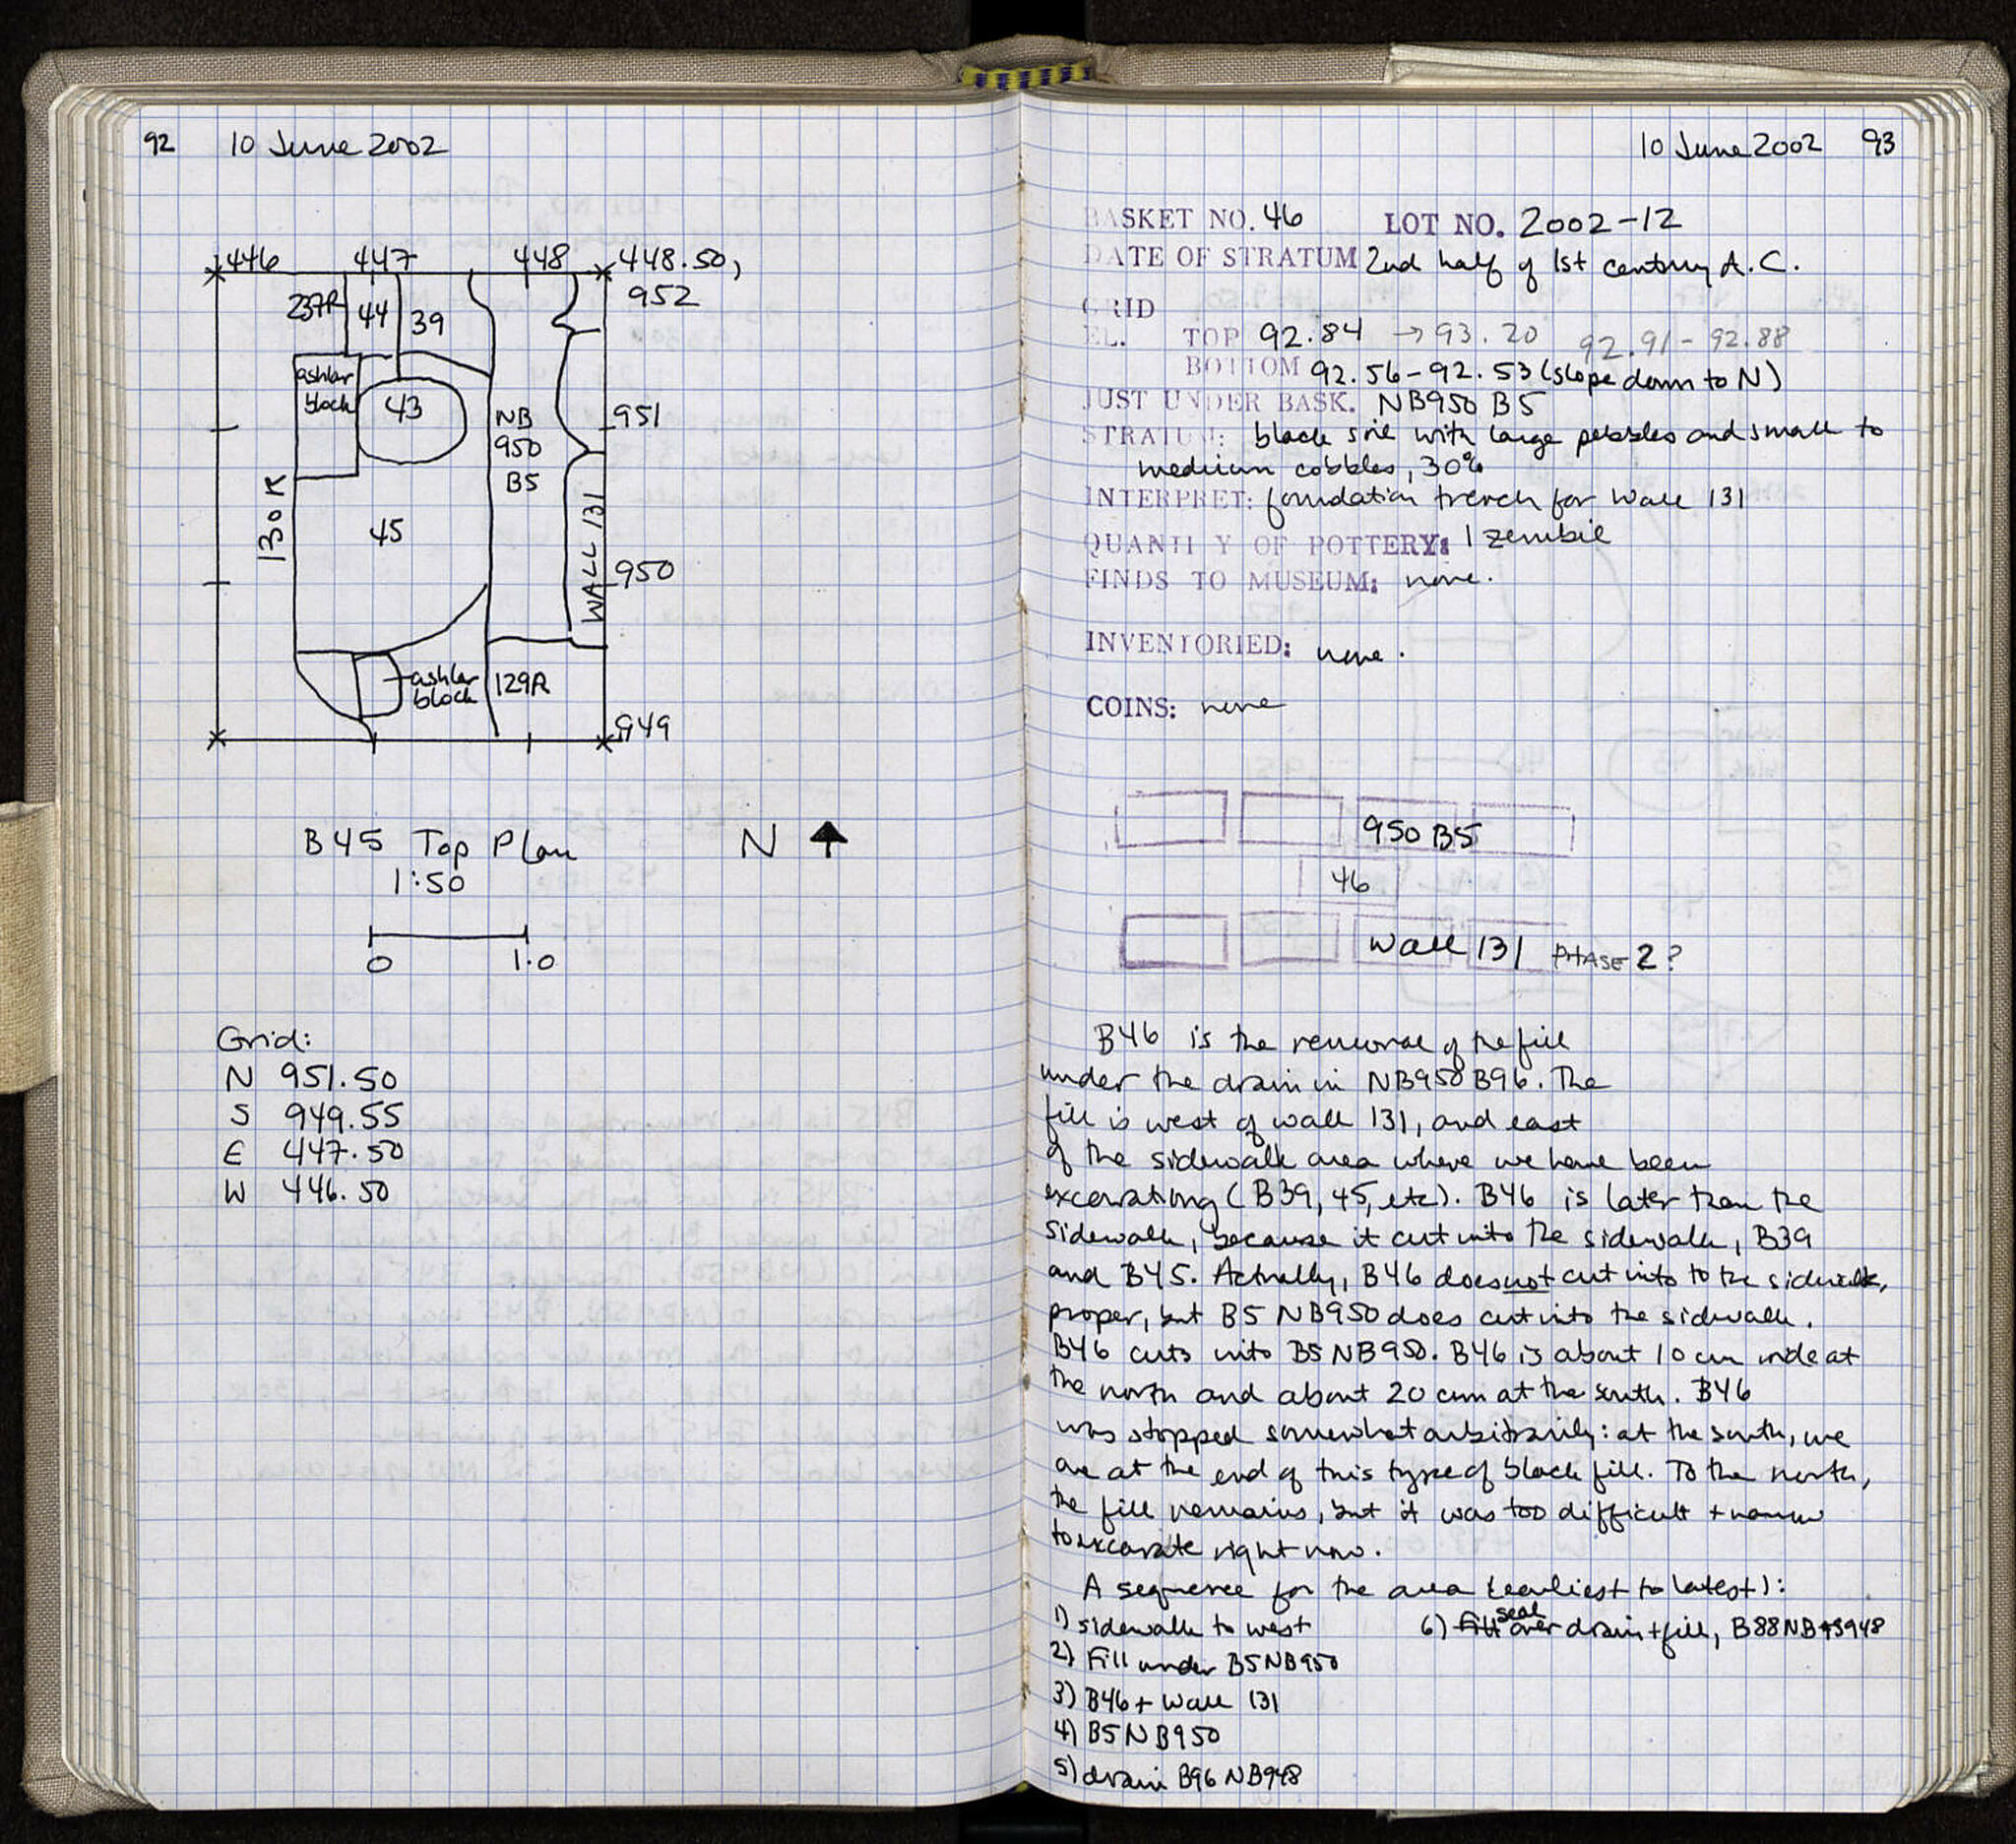 92 10 June 2002
446 447 448 448.50,
952
237R 44 39
ashlar
block
43
NB
950
B5
951
130R
45
WALL 131
950
ashlar
block
129R
949
B45 Top Plan N
1:50
0 1.0
Grid:
N 951.50
S 949.55
E 447.50
W 446.50
10 June 2002 93
BASKET NO. 46 LOT NO. 2002-12
DATE OF STRATUM 2nd half of 1st century A.C.
GRID
EL. TOP 92.84 → 93.20 92.91 - 92.88
BOTTOM 92.56-92.53 (slope down to N)
JUST UNDER BASK. NB950 B5
STRATUM: black soil with large pebbles and small to
medium cobbles, 30%
INTERPRET: foundation trench for Wall 131
QUANTITY OF POTTERY: 1 zembil
FINDS TO MUSEUM: none.
INVENTORIED: none.
COINS: none
950 B5
46
Wall 131 PHASE 2?
B46 is the removal of the fill
under the drain in NB950 B96. The
fill is west of wall 131, and east
of the sidewalk area where we have been
excavating (B39, 45, etc). B46 is later than the
sidewalk, because it cut into the sidewalk, B39
and B45. Actually, B46 does not cut into to the sidewalk,
proper, but B5 NB950 does cut into the sidewalk.
B46 cuts into B5 NB950. B46 is about 10 cm wide at
the north and about 20 cm at the south. B46
was stopped somewhat arbitrarily: at the south, we
are at the end of this type of black fill. To the north,
the fill remains, but it was too difficult + narrow
to excavate right now.
A sequence for the area (earliest to latest):
1) sidewalk to west
2) Fill under B5NB950
3) B46 + Wall 131
4) B5NB950
5) drain B96 NB948
6) Fill seal over drain + fill, B88 NB948